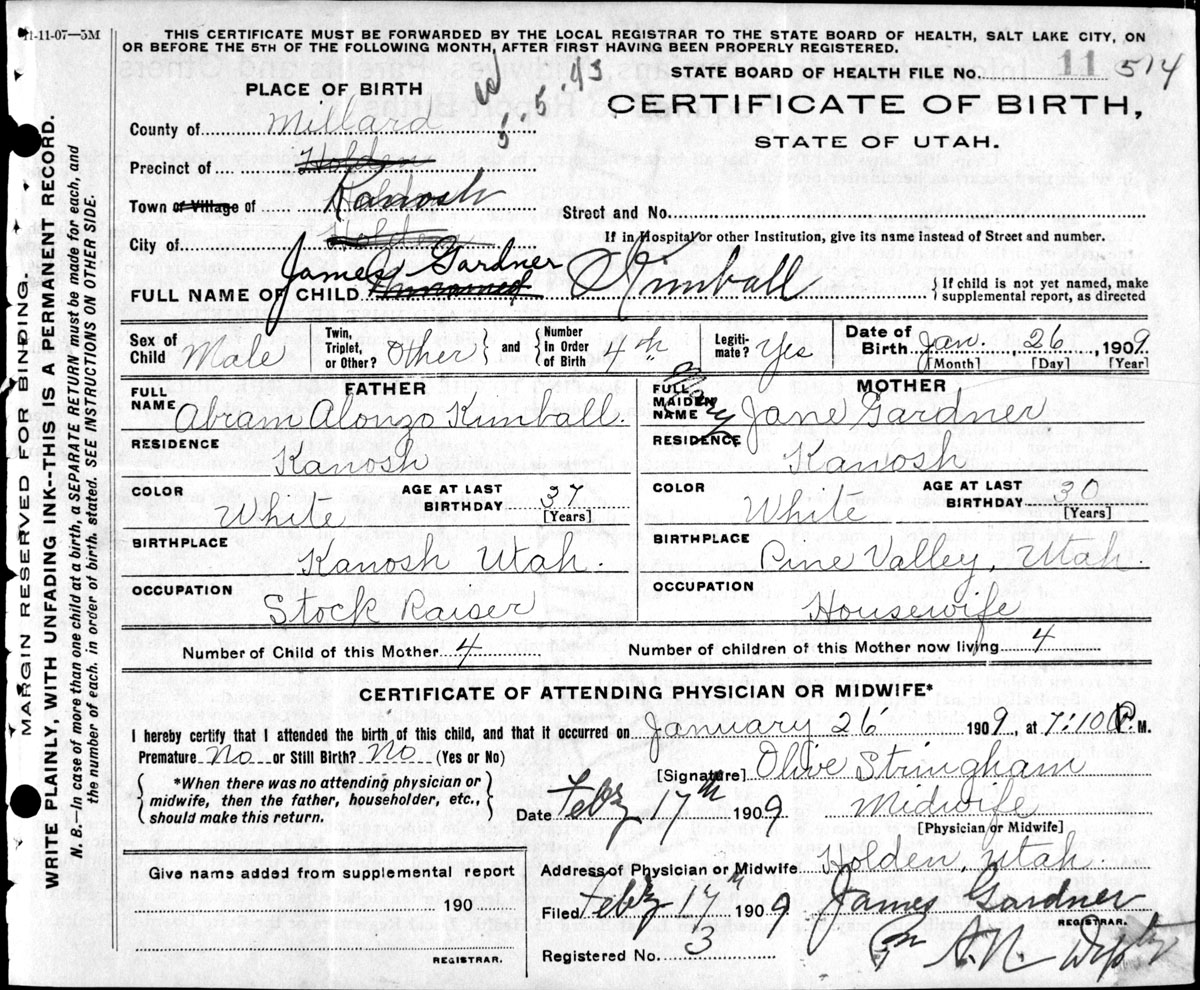 11-11-07—5M
THIS CERTIFICATE MUST BE FORWARDED BY THE LOCAL REGISTRAR TO THE STATE BOARD OF HEALTH, SALT LAKE CITY, ON
OR BEFORE THE 5TH OF THE FOLLOWING MONTH, AFTER FIRST HAVING BEEN PROPERLY REGISTERED.
STATE BOARD OF HEALTH FILE No. 11 514
PLACE OF BIRTH
CERTIFICATE OF BIRTH,
STATE OF UTAH.
County of Millard
Precinct of Holden
Town or Village of Kanosh
Street and No.
City of Holden
If in Hospital or other Institution, give its name instead of Street and number.
James Gardner
FULL NAME OF CHILD Unnamed Kimball
If child is not yet named, make
supplemental report, as directed
Sex of Child Male
Twin, Triplet, or Other? Other and Number In Order of Birth 4th
Legitimate? Yes
Date of Birth Jan. 26, 1909.
[Month] [Day] [Year]
FATHER
FULL NAME Abram Alonzo Kimball.
RESIDENCE Kanosh
COLOR White
AGE AT LAST BIRTHDAY 37
[Years]
BIRTHPLACE Kanosh Utah.
OCCUPATION Stock Raiser
MOTHER
FULL MAIDEN NAME Mary Jane Gardner
RESIDENCE Kanosh
COLOR White
AGE AT LAST BIRTHDAY 30
[Years]
BIRTHPLACE Pine Valley, Utah.
OCCUPATION Housewife
Number of Child of this Mother 4
Number of children of this Mother now living 4
CERTIFICATE OF ATTENDING PHYSICIAN OR MIDWIFE*
I hereby certify that I attended the birth of this child, and that it occurred on January 26 1909, at 7:10 P.M.
Premature No or Still Birth? No (Yes or No)
*When there was no attending physician or
midwife, then the father, householder, etc.,
should make this return.
[Signature] Olive Stringham
Date Feby 17th 1909
Midwife
[Physician or Midwife]
Give name added from supplemental report
190
REGISTRAR.
Address of Physician or Midwife Holden, Utah.
Filed Feby 17th 1909 James Gardner
REGISTRAR.
Registered No. 3
MARGIN RESERVED FOR BINDING.
WRITE PLAINLY, WITH UNFADING INK--THIS IS A PERMANENT RECORD.
N. B.—In case of more than one child at a birth, a SEPARATE RETURN must be made for each, and
the number of each, in order of birth, stated. SEE INSTRUCTIONS ON OTHER SIDE.